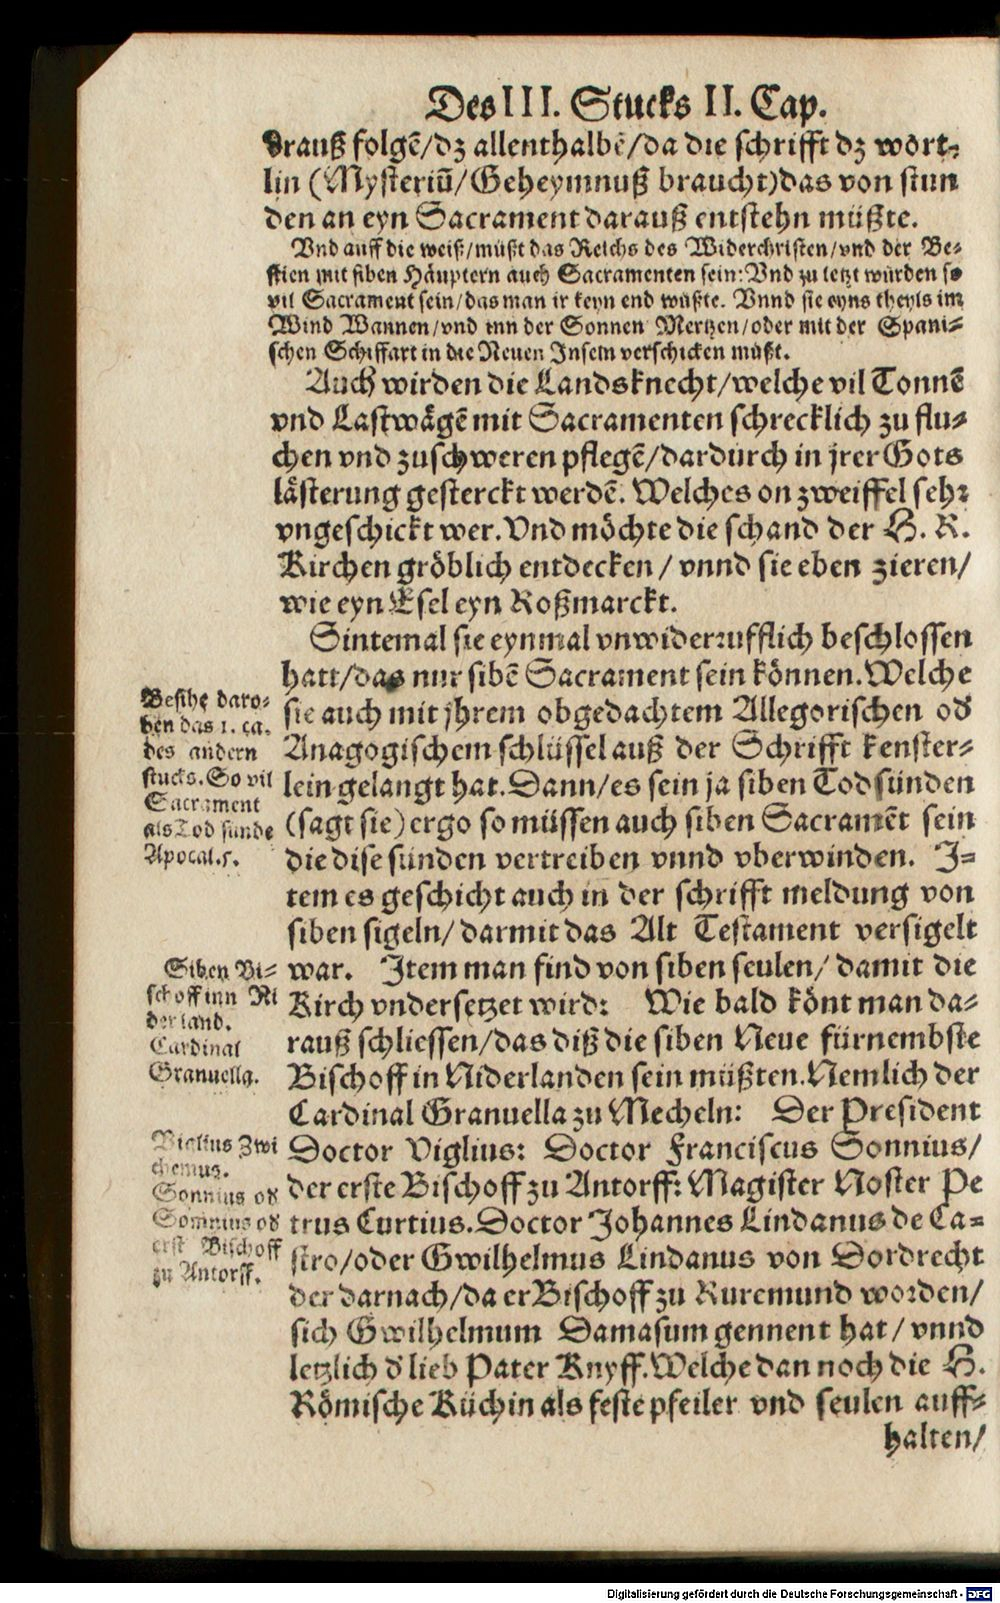 Des III. Stucks II. Cap.
drauß folgẽ/dz allenthalbẽ/da die schrifft dz wort-
lin (Mysteriũ/Geheymnuß braucht) das von stun
den an eyn Sacrament darauß entstehn müßte.
Vnd auff die weiß/müßt das Reichs des Widerchristen/vnd der Be-
stien mit siben Häuptern auch Sacramenten sein: Vnd zu letzt würden so
vil Sacrament sein/das man ir keyn end wüßte. Vnnd sie eyns theyls im
Wind Wannen/vnd inn der Sonnen Mertzen/oder mit der Spani-
schen Schiffart in die Neuen Inseln verschicken müßt.
Auch wirden die Landsknecht/welche vil Tonnẽ
vnd Lastwägẽ mit Sacramenten schrecklich zu flu-
chen vnd zuschweren pflegẽ/dardurch in jrer Gots
lästerung gesterckt werdẽ. Welches on zweiffel sehr
vngeschickt wer. Vnd möchte die schand der H. R.
Kirchen gröblich entdecken / vnnd sie eben zieren/
wie eyn Esel eyn Roßmarckt.
Sintemal sie eynmal vnwiderrufflich beschlossen
hatt/das nur sibẽ Sacrament sein können. Welche
sie auch mit jhrem obgedachtem Allegorischen od
Anagogischem schlüssel auß der Schrifft kenster-
lein gelangt hat. Dann/es sein ja siben Todsünden
(sagt sie) ergo so müssen auch siben Sacramẽt sein
die dise sünden vertreiben vnnd vberwinden. I-
tem es geschicht auch in der schrifft meldung von
siben sigeln/ darmit das Alt Testament versigelt
war. Item man find von siben seulen/ damit die
Kirch vndersetzet wird: Wie bald könt man da-
rauß schliessen/das diß die siben Neue fürnembste
Bischoff in Niderlanden sein müßten. Nemlich der
Cardinal Granuella zu Mecheln: Der President
Doctor Viglius: Doctor Franciscus Sonnius/
der erste Bischoff zu Antorff: Magister Noster Pe
trus Curtius. Doctor Johannes Lindanus de Ca-
stro/oder Gwilhelmus Lindanus von Dordrecht
der darnach/da er Bischoff zu Ruremund worden/
sich Gwilhelmum Damasum gennent hat/ vnnd
letzlich d lieb Pater Knyff. Welche dan noch die H.
Römische Küchin als feste pfeiler vnd seulen auff-
halten/
Besihe daro-
ben das 1. ca.
des andern
stucks. So vil
Sacrament
als Tod sünde
Apocal. 5.
Siben Bi-
schoff inn Ni
derland.
Cardinal
Granuella.
Viglius Zwi
chemus.
Sonnius od
Somnius od
erst Bischoff
zu Antorff.
Digitalisierung gefördert durch die Deutsche Forschungsgemeinschaft - DFG